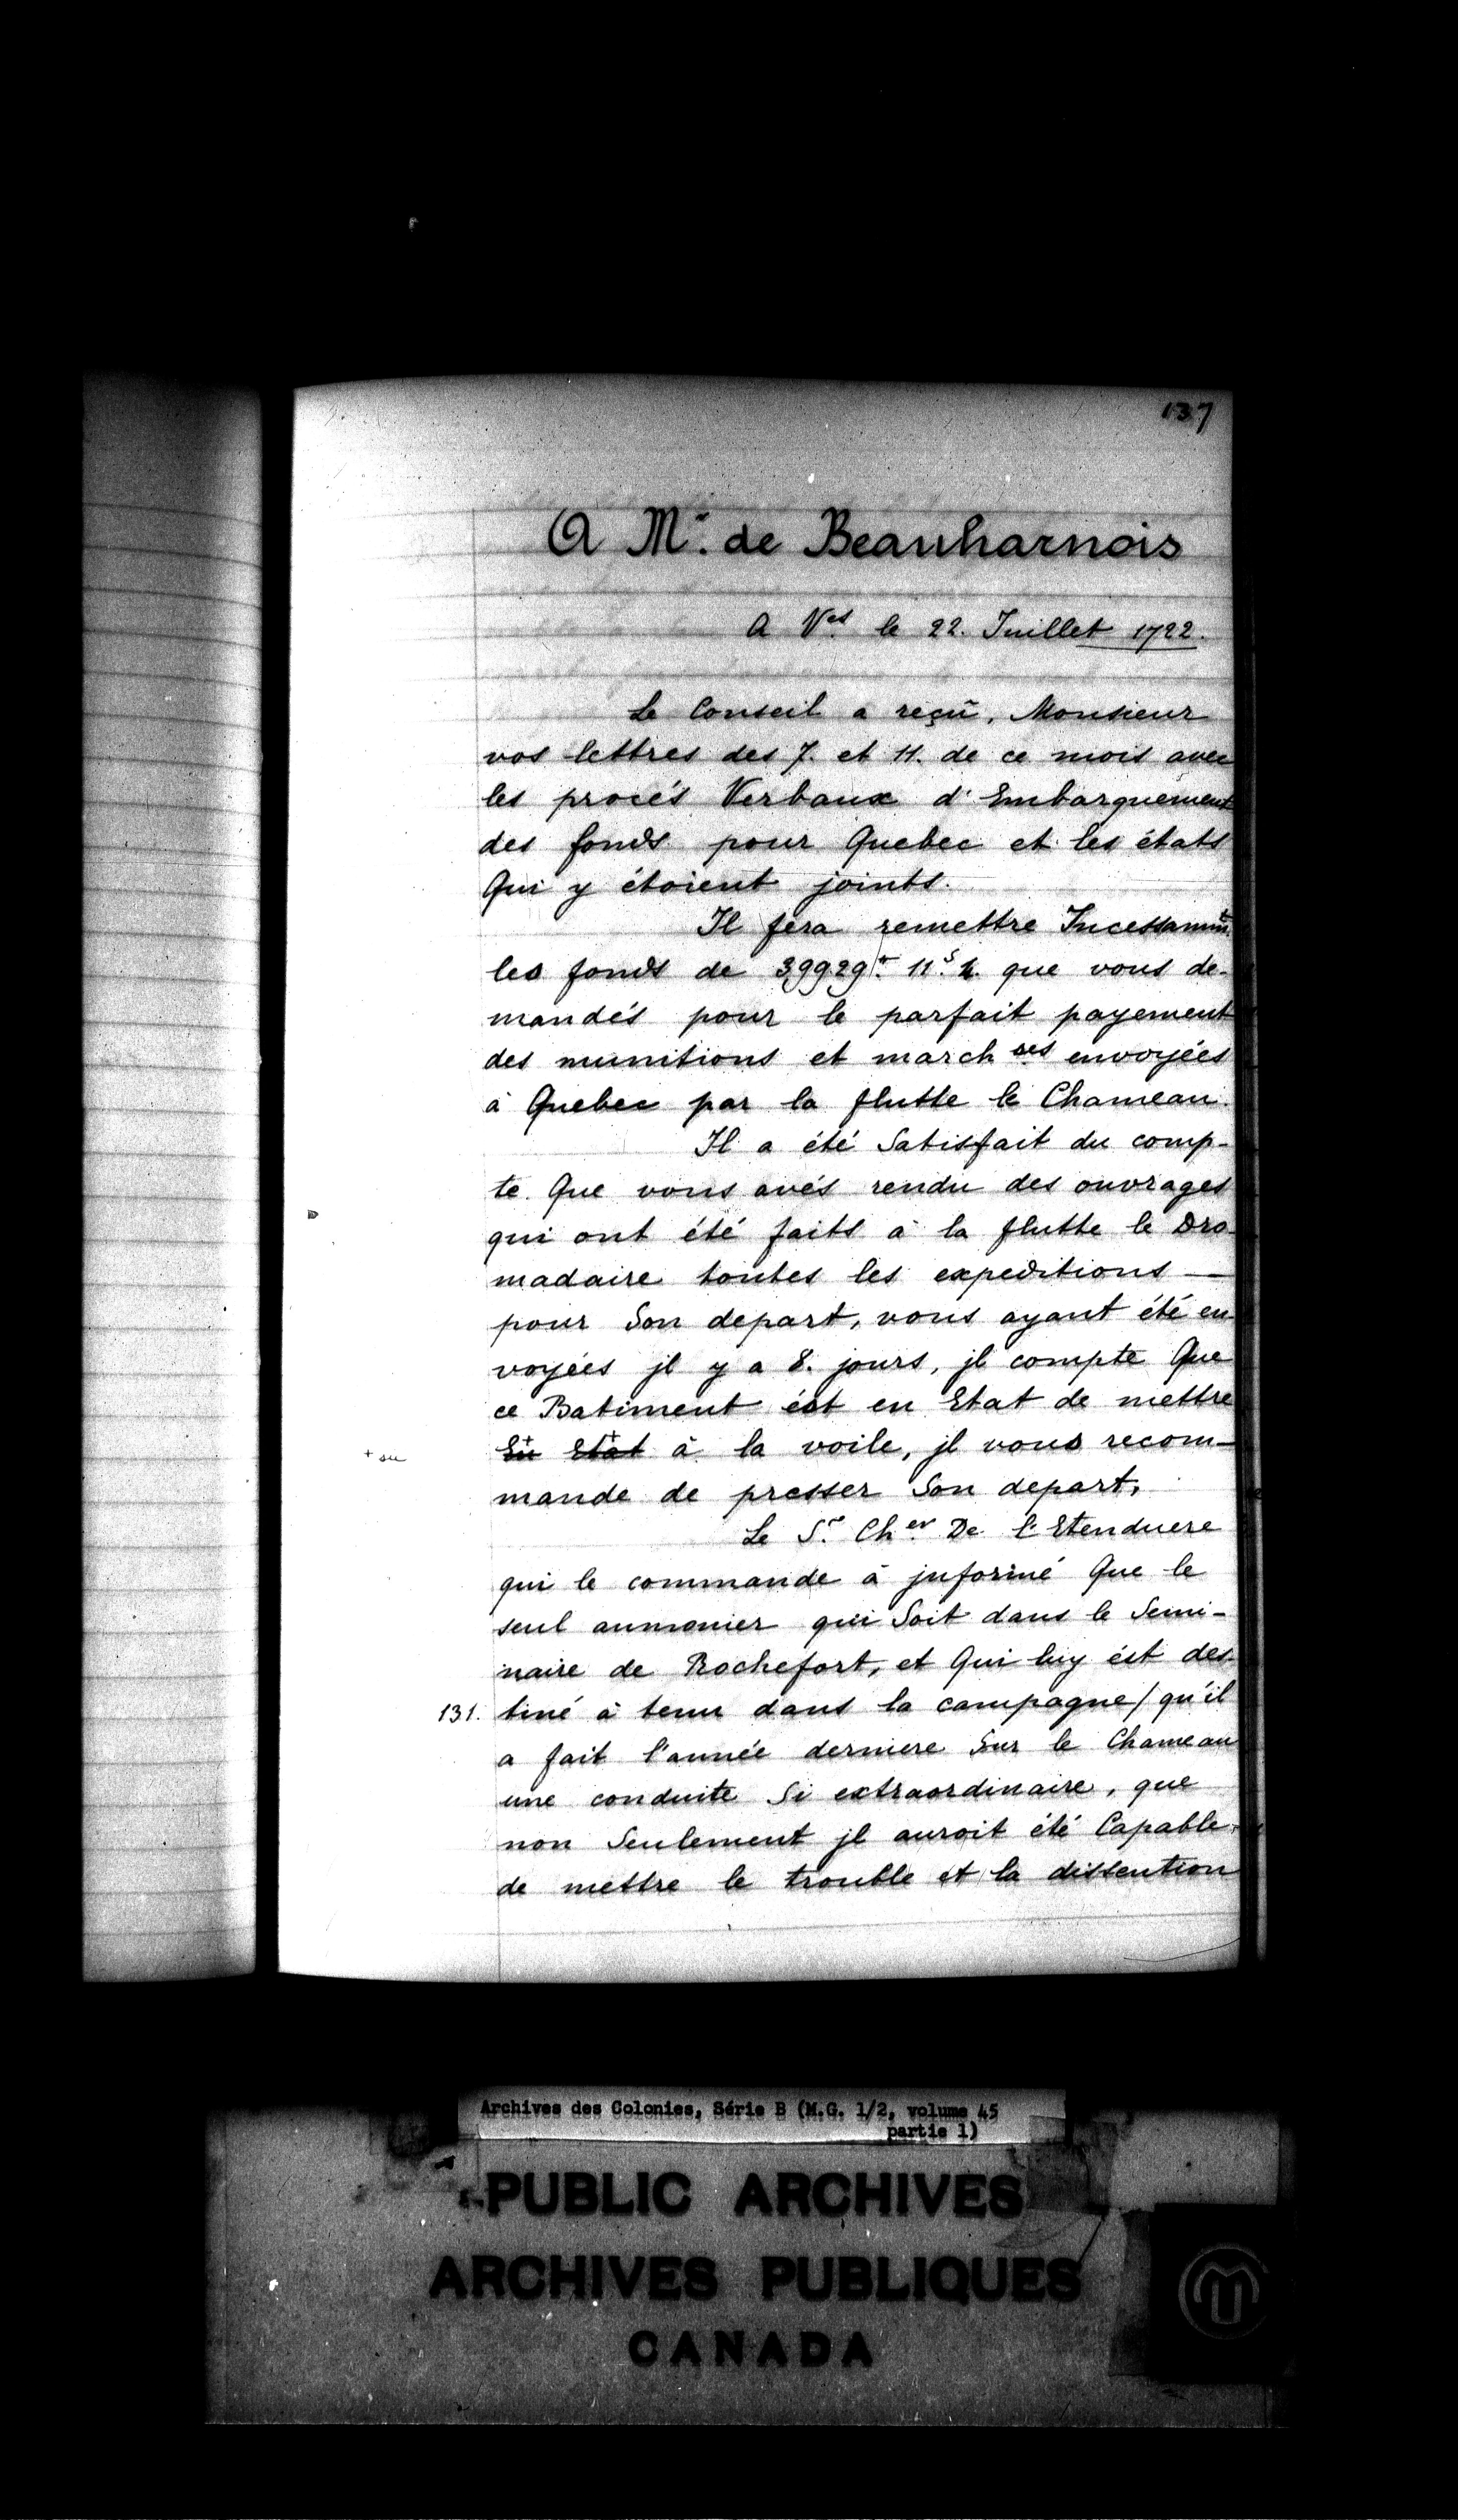 137
A Mr. de Beauharnois
A Ves. le 22. Juillet 1722.
Le Conseil a reçû, Monsieur
vos lettres des 7. et 11. de ce mois avec
les procés Verbaux d'Embarquement
des fonds pour Quebec et les états
Qui y étoient joints.
Il fera remettre Incessammt.
les fonds de 39929 11.s que vous de-
mandés pour le parfait payement
des munitions et march ses envoyées
à Quebec par la flutte le Chameau.
Il a été Satisfait du comp-
te Que vous avés rendu des ouvrages
qui ont été faits à la flutte le Dro-
madaire toutes les expeditions —
pour Son depart, vous ayant été en-
voyées jl y a 8. jours, jl compte Que
ce Batiment ést en Etat de mettre
+ su En Etat à la voile, jl vous recom-
mande de presser Son depart,
Le Sr. Cher. De l'Etenduere
qui le commande à jnformé Que le
seul aumonier qui Soit dans le Semi-
naire de Rochefort, et Qui luy ést des-
131. tiné à tenu dans la campagne / qu'il
a fait l'année derniere Sur le Chameau
une conduite Si extraordinaire, que
non Seulement jl auroit été Capable
de mettre le trouble et la dissention
Archives des Colonies, Série B (M.G. 1/2, volume 45
partie 1)
PUBLIC ARCHIVES
ARCHIVES PUBLIQUES
CANADA